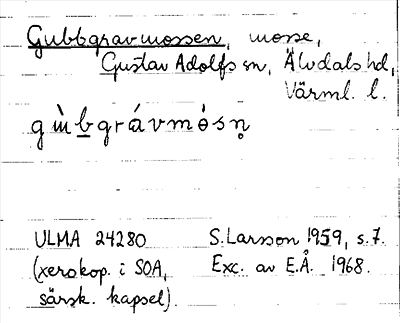 Gubbgravmossen, mosse,
Gustav Adolfs sn, Älvdals hd,
Värml. l.
gùbgrávmósn̥
ULMA 24280 S. Larsson 1959, s. 7.
(xerokop. i SOA, Exc. av E.Å. 1968.
särsk. kapsel).